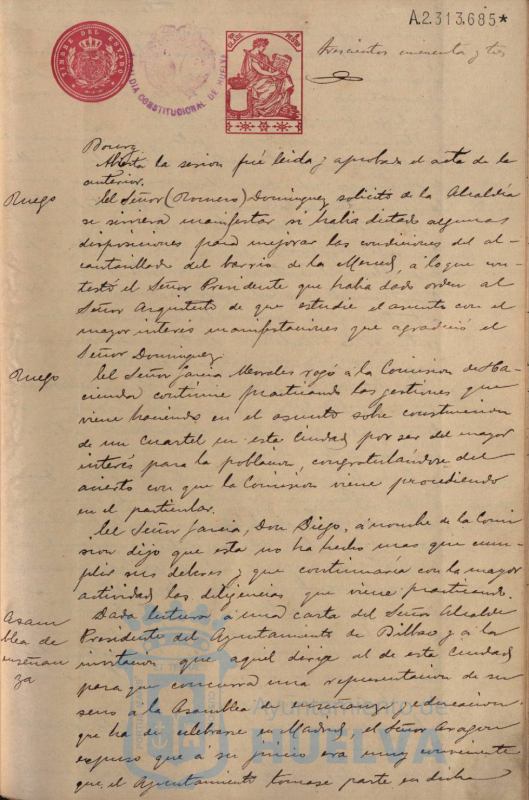 A.2.313.685*
TIMBRE DEL ESTADO
ALCALDIA CONSTITUCIONAL DE HUELVA
Trescientos cuarenta y tres
Abierta la sesion fué leida y aprobada el acta de la
anterior.
Ruego
El Señor (Romero) Dominguez solicitó de la Alcaldía
se sirviera manifestar si habia dictado algunas
disposiciones para mejorar las condiciones del al-
cantarillado del barrio de la Merced, á lo que con-
testó el Señor Presidente que habia dado orden al
Señor Arquitecto de que estudie el asunto con el
mayor interés manifestaciones que agradeció el
Señor Dominguez
Ruego
El Señor Garcia Morales rogó á la Comision de Ha-
cienda continue practicando las gestiones que
viene haciendo en el asunto sobre construccion
de un Cuartel en esta Ciudad por ser del mayor
interés para la poblacion, congratulándose del
acierto con que la Comision viene procediendo
en el particular.
El Señor Garcia, Don Diego, á nombre de la Comi
sion dijo que esta no ha hecho mas que cum-
plir sus deberes y que continuaria con la mayor
actividad las diligencias que viene practicando.
Asam
blea de
enseñan
za
Dada lectura á una carta del Señor Alcalde
Presidente del Ayuntamiento de Bilbao y á la
invitacion que aquel dirige al de esta Ciudad
para que concurra una representacion de su
seno á la Asamblea de enseñanza y educacion
que ha de celebrarse en Madrid, el Señor Aragon
expuso que á su juicio era muy conveniente
que el Ayuntamiento tomase parte en dicha
Ayuntamiento de
HUELVA